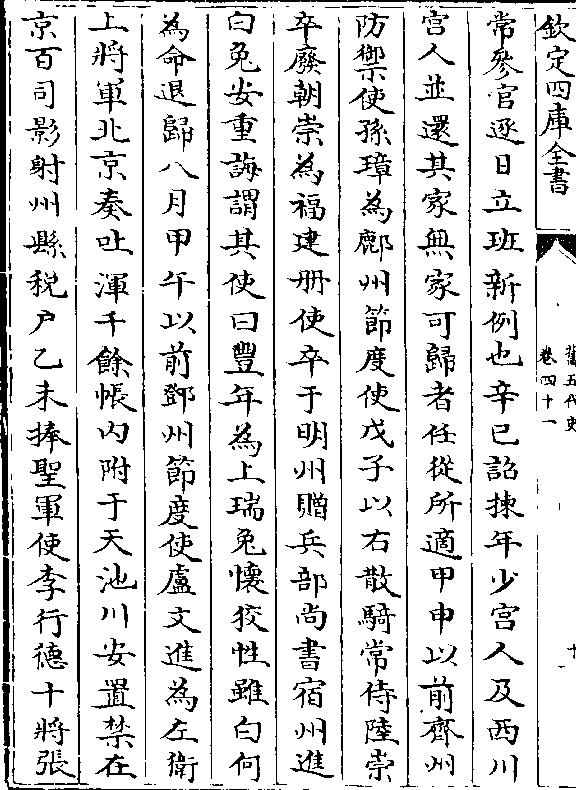 欽定四庫全書
舊五代史
卷四十一
十
常參官逐日立班新例也辛巳詔揀年少宮人及西川
宮人並還其家無家可歸者任從所適甲申以前齊州
防禦使孫璋為鄜州節度使戊子以右散騎常侍陸崇
卒廢朝崇為福建冊使卒于明州贈兵部尚書宿州進
白兔安重誨謂其使曰豐年為上瑞兔懷狡性雖白何
為命退歸八月甲午以前鄧州節度使盧文進為左衛
上將軍北京奏吐渾千餘帳內附于天池川安置禁在
京百司影射州縣稅戶乙未捧聖軍使李行德十將張